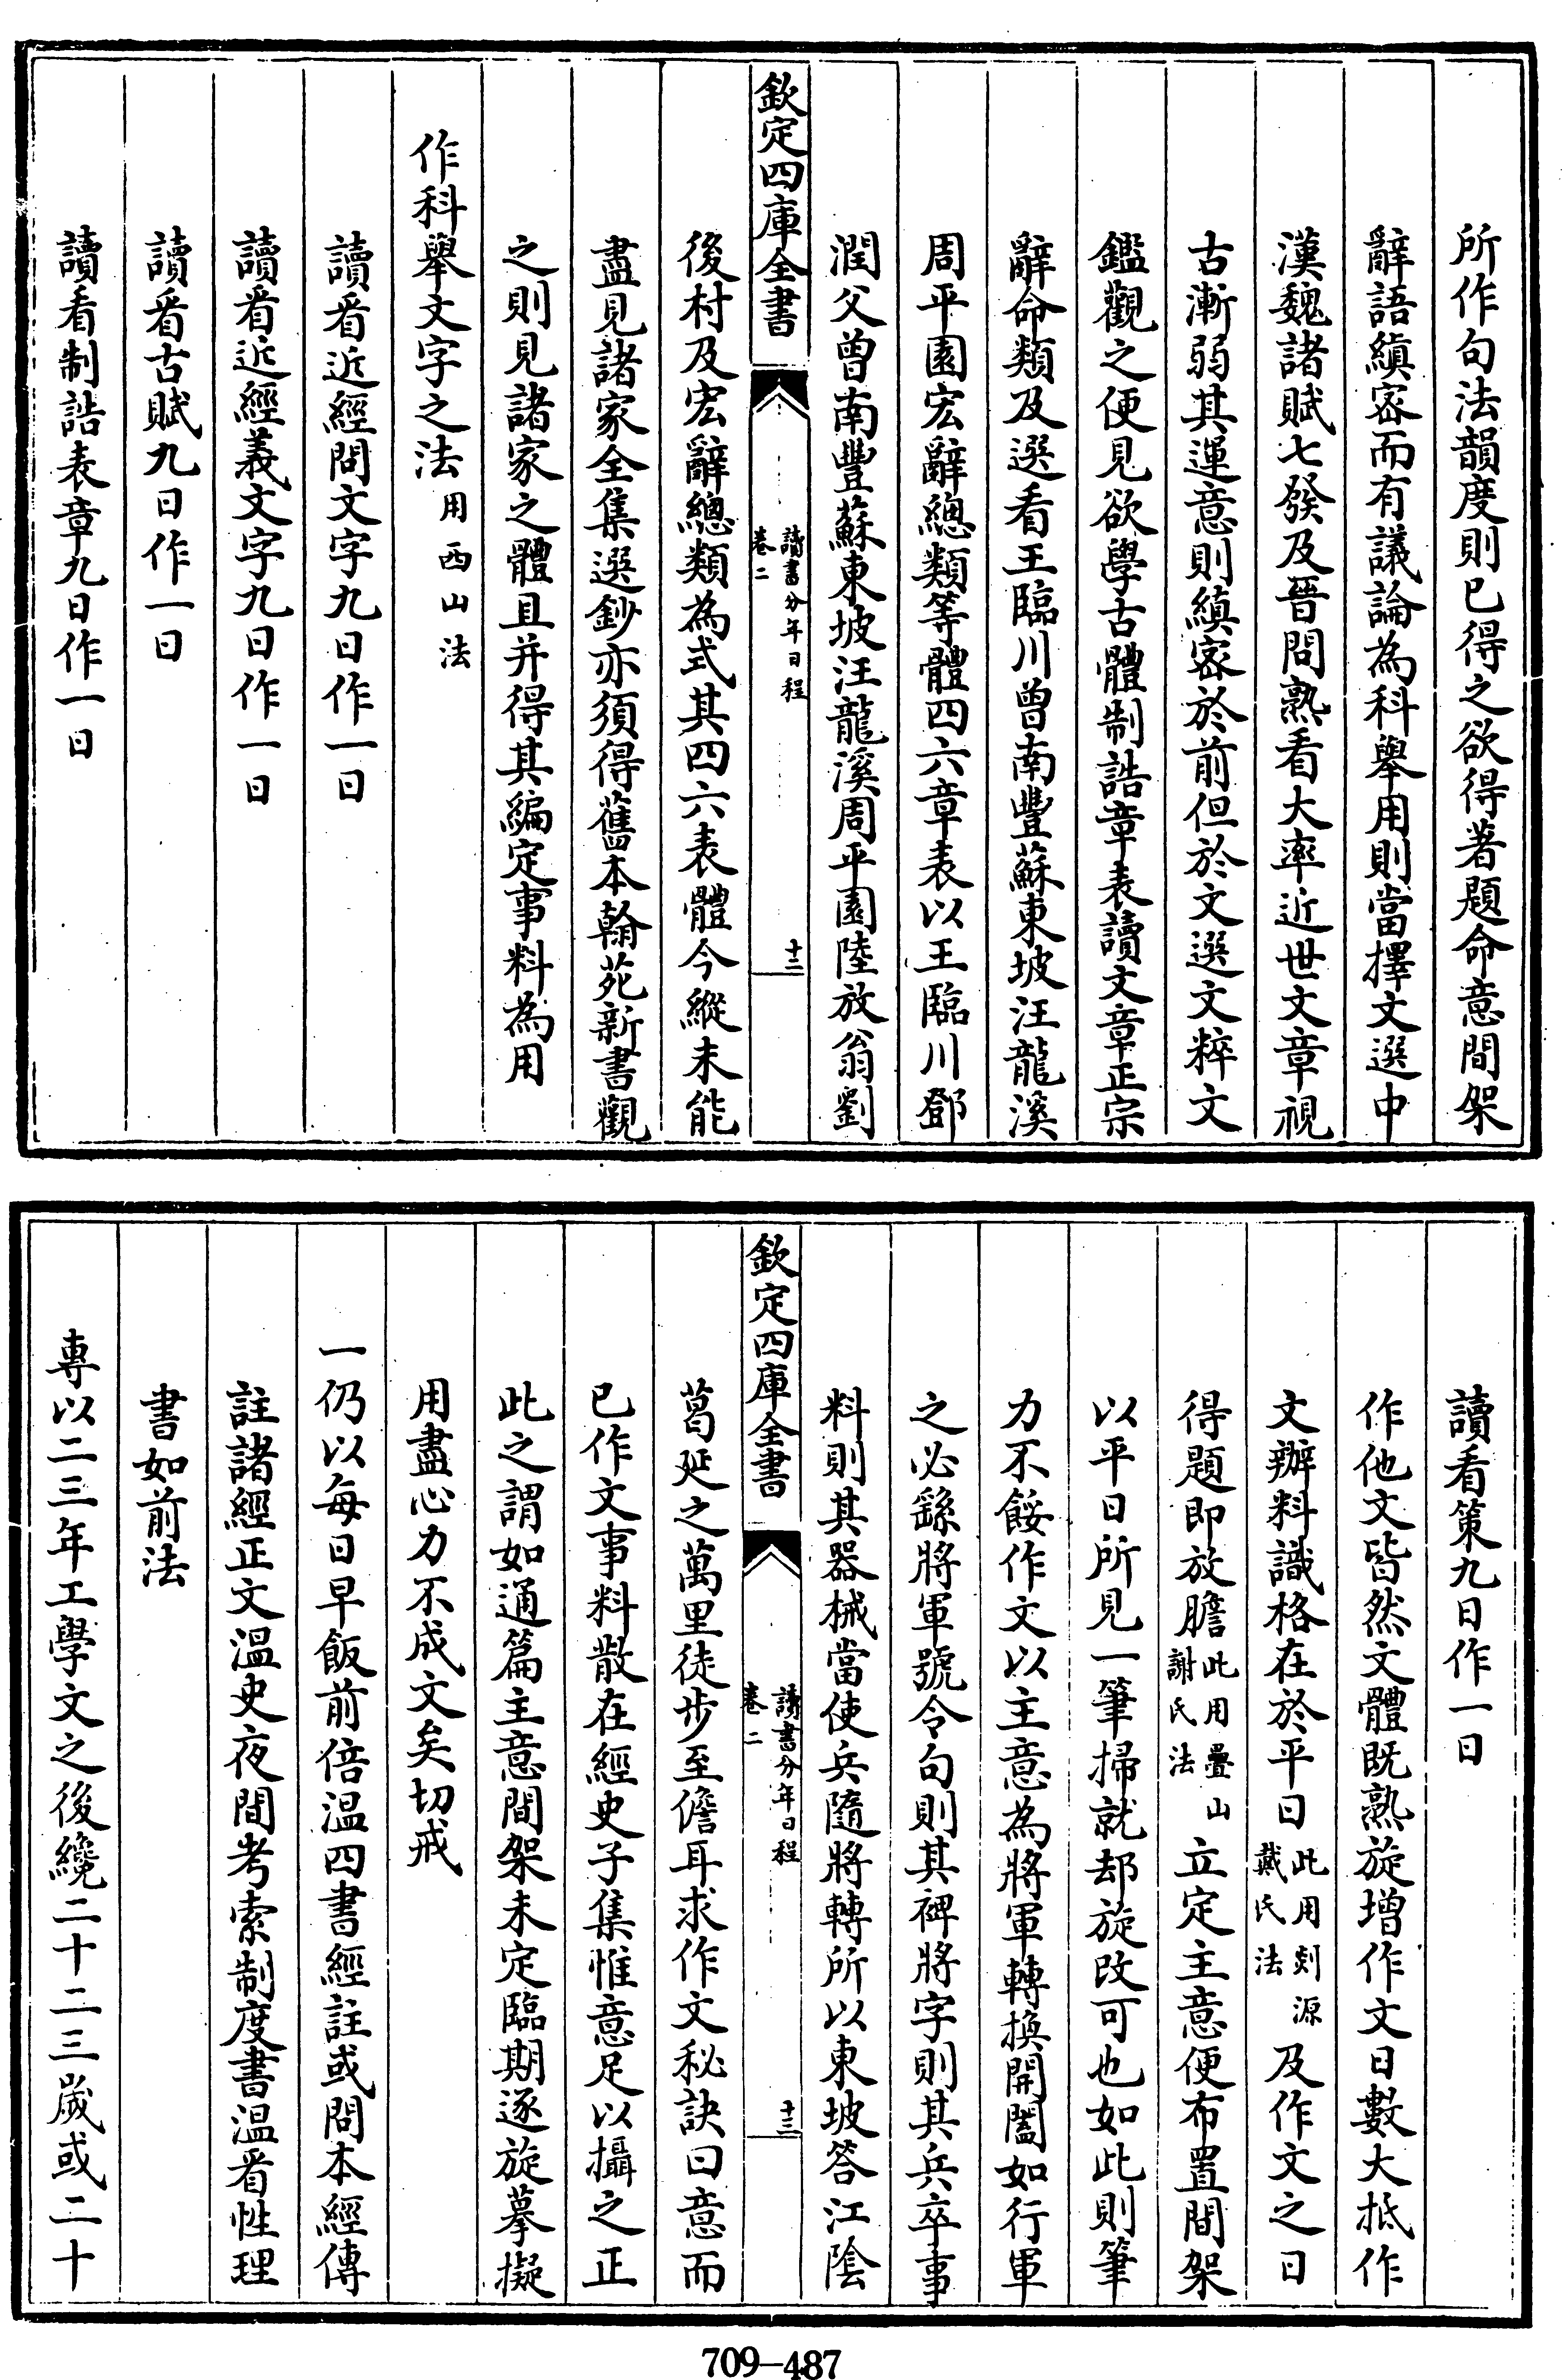 所作句法韻度則已得之欲得著題命意間架
辭語縝密而有議論為科舉用則當擇文選中
漢魏諸賦七發及晉問熟看大率近世文章視
古漸弱其運意則縝密於前但於文選文粹文
鑑觀之便見欲學古體制誥章表讀文章正宗
辭命類及選看王臨川曾南豐蘇東坡汪龍溪
周平園宏辭總類等體四六章表以王臨川鄧
潤父曾南豐蘇東坡汪龍溪周平園陸放翁劉
欽定四庫全書
讀書分年日程
卷二
十二
後村及宏辭總類為式其四六表體今縱未能
盡見諸家全集選鈔亦須得舊本翰苑新書觀
之則見諸家之體且并得其編定事料為用
作科舉文字之法用西山法
讀看近經問文字九日作一日
讀看近經義文字九日作一日
讀看古賦九日作一日
讀看制誥表章九日作一日
讀看策九日作一日
作他文皆然文體既熟旋增作文日數大抵作
文辦料識格在於平日此用剡源戴氏法及作文之日
得題即放膽此用疊山謝氏法立定主意便布置間架
以平日所見一筆掃就却旋改可也如此則筆
力不餒作文以主意為將軍轉換開闔如行軍
之必繇將軍號令句則其裨將字則其兵卒事
料則其器械當使兵隨將轉所以東坡答江陰
欽定四庫全書
讀書分年日程
卷二
十三
葛延之萬里徒步至儋耳求作文秘訣曰意而
已作文事料散在經史子集惟意足以攝之正
此之謂如通篇主意間架未定臨期逐旋摹擬
用盡心力不成文矣切戒
一仍以每日早飯前倍温四書經註或問本經傳
註諸經正文温史夜間考索制度書温看性理
書如前法
專以二三年工學文之後纔二十二三歲或二十
709-487